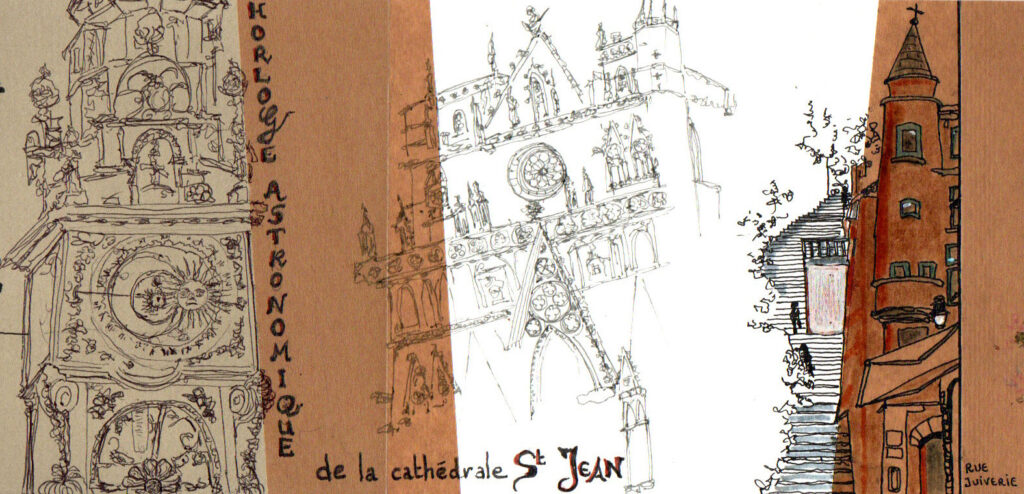 HORLOGE ASTRONOMIQUE
de la cathédrale St JEAN
RUE
JUIVERIE